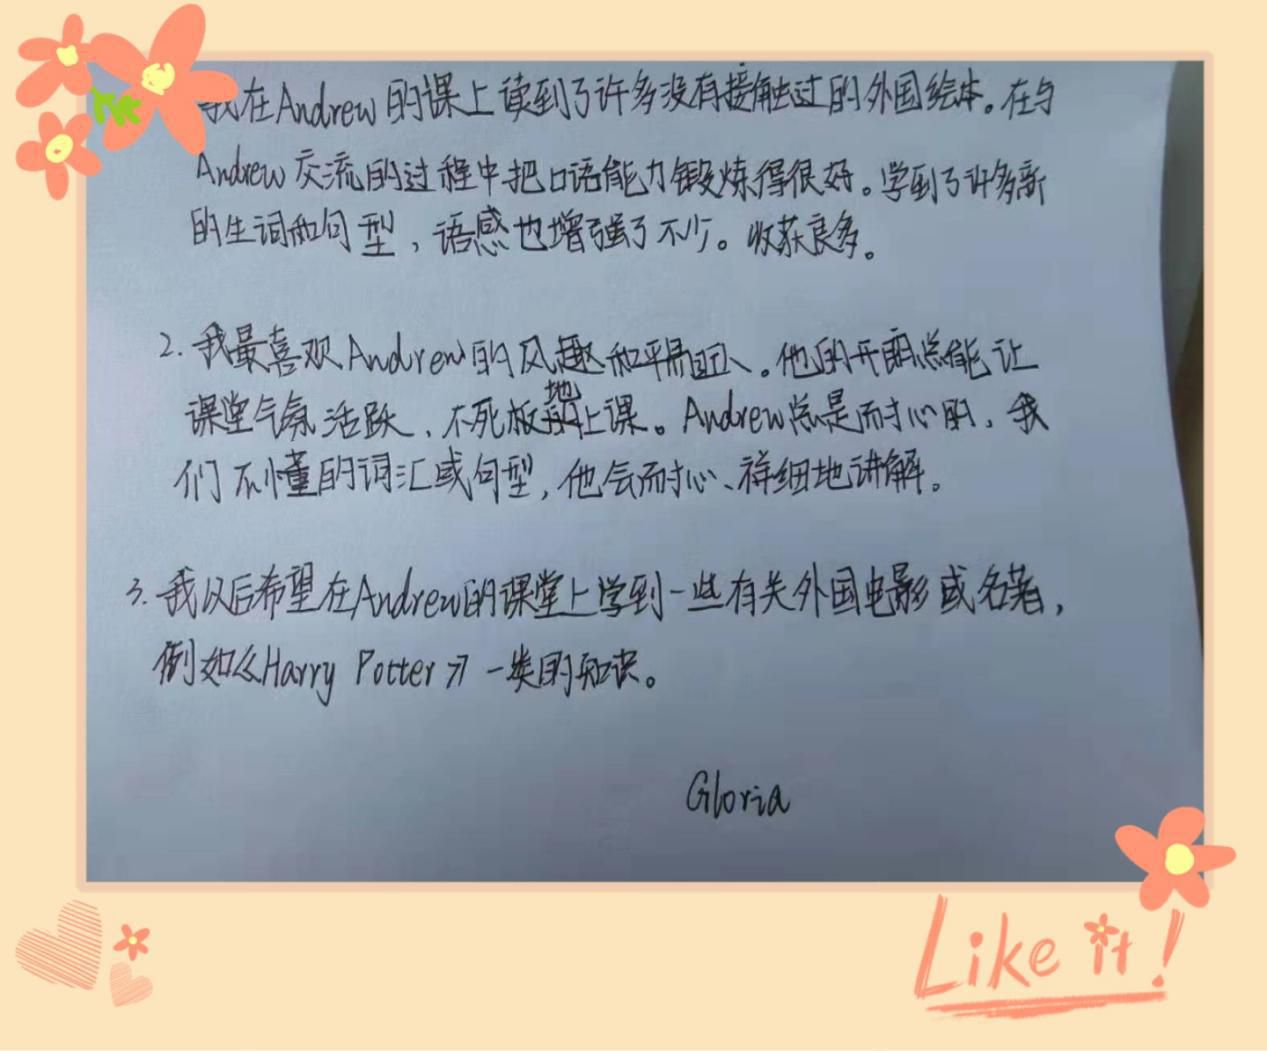 我在Andrew的课上读到了许多没有接触过的外国绘本。在与
Andrew交流的过程中把口语能力锻炼得很好。学到了许多新
的生词和句型，语感也增强了不少。收获良多。
2. 我最喜欢Andrew的风趣和平易近人。他的开朗总能让
课堂气氛活跃、不死板地上课。Andrew总是耐心的，我
们不懂的词汇或句型，他会耐心、祥细地讲解。
3. 我以后希望在Andrew的课堂上学到一些有关外国电影或名著，
例如《Harry Potter》一类的知识。
Gloria
Like it!